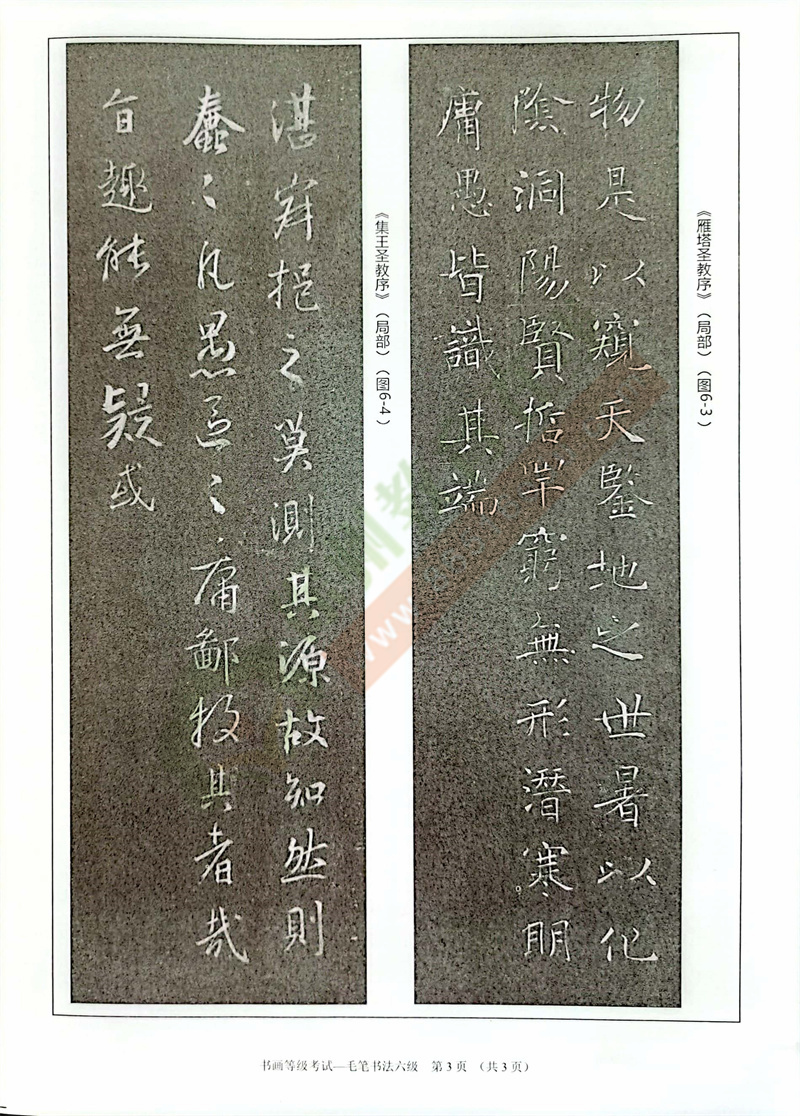 《雁塔圣教序》（局部）（图6-3）
物是以窺天鑒地之世暑以化
陰洞陽賢哲罕窮無形潛寒明
庸愚皆識其端
《集王圣教序》（局部）（图6-4）
湛寂挹之莫測其源故知然則
蠢〻凡愚區〻庸鄙投其者哉
旨趣能無疑或
书画等级考试—毛笔书法六级 第3页 （共3页）